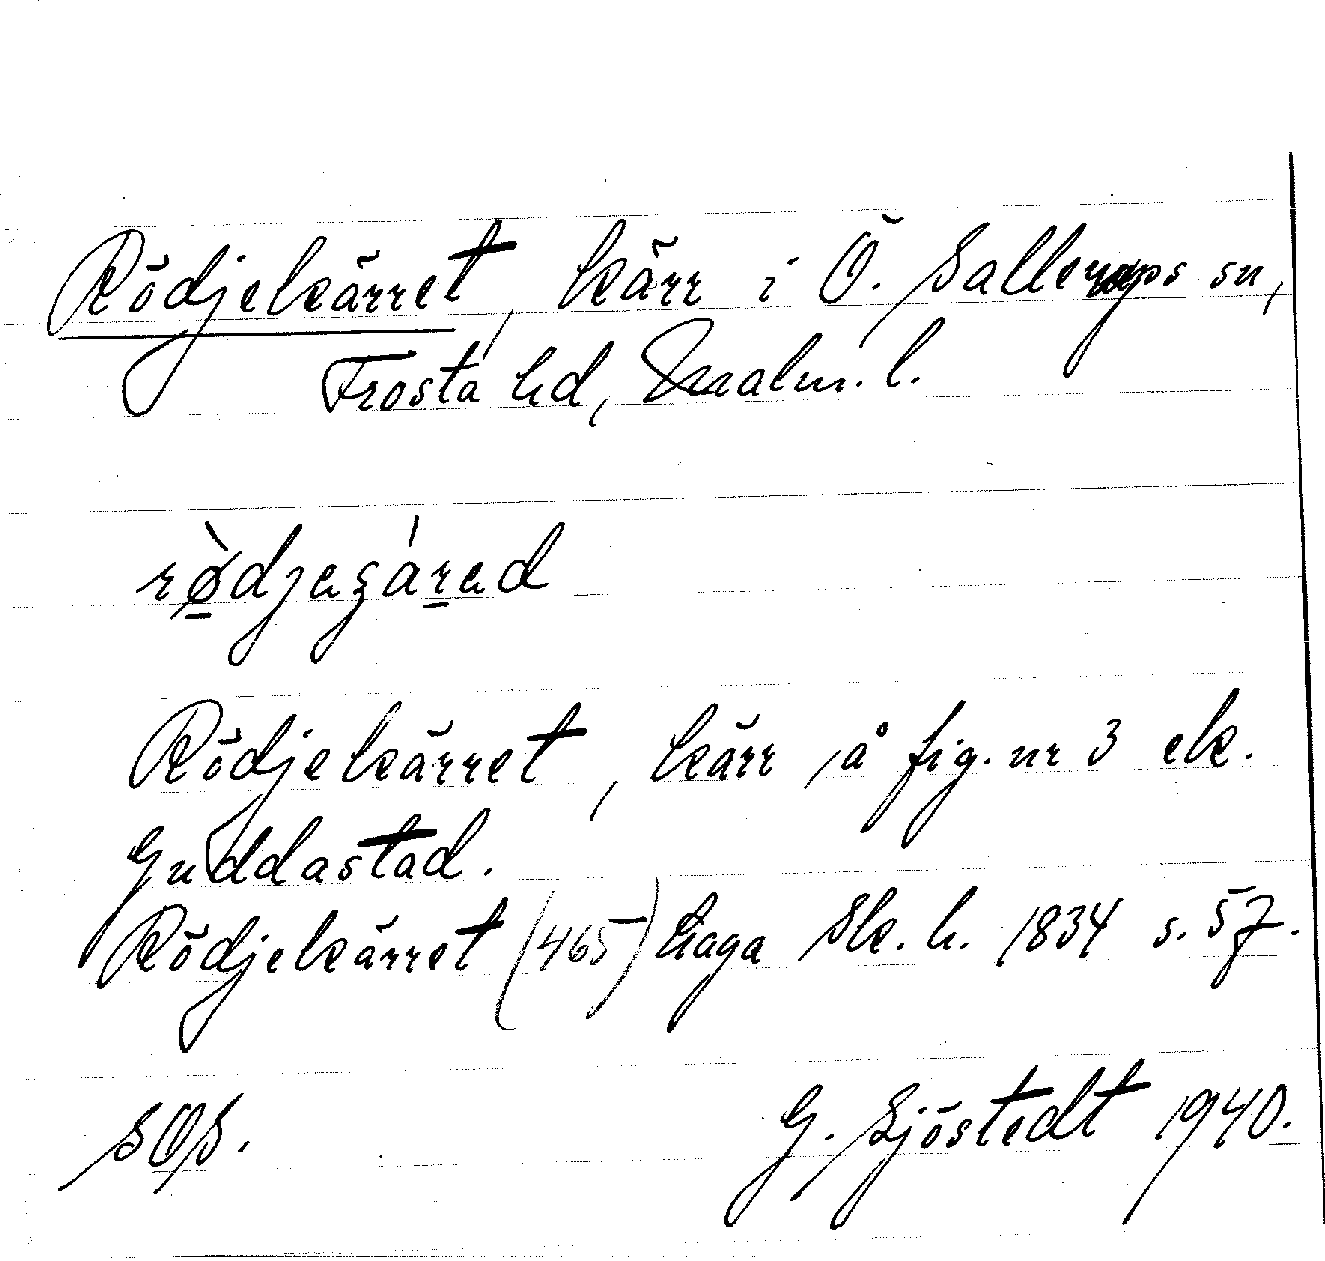 Rödjekärret, kärr i Ö. Sallerups sn,
Frosta hd, Malm. l.
rø̀djagárad
Rödjekärret, kärr å fig. nr 3 ek.
Guddastad.
Rödjekärret (465) haga Sk. h. 1834 s. 57.
SOS.
G. Sjöstedt 1940.